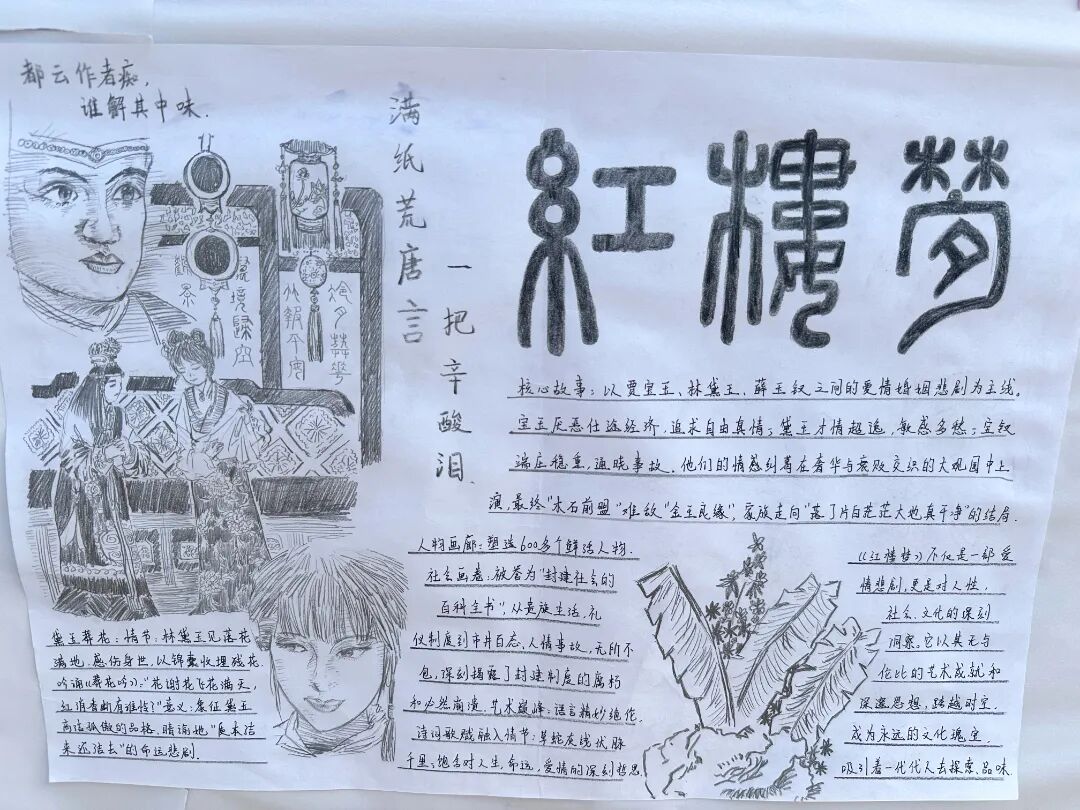 都云作者痴，
谁解其中味．
满纸荒唐言
一把辛酸泪．
紅樓夢
核心故事：以贾宝玉、林黛玉、薛宝钗之间的爱情婚姻悲剧为主线。
宝玉厌恶仕途经济，追求自由真情；黛玉才情超逸，敏感多愁；宝钗
端庄稳重，通晓世故．他们的情感纠葛在奢华与衰败交织的大观园中上
演，最终"木石前盟"难敌"金玉良缘"，家族走向"落了片白茫茫大地真干净"的结局．
人物画廊：塑造600多个鲜活人物．
社会画卷：被誉为"封建社会的
百科全书"，从贵族生活，礼
仪制度到市井百态、人情事故，无所不
包，深刻揭露了封建制度的腐朽
和必然崩溃．艺术巅峰：语言精妙绝伦．
诗词歌赋融入情节：草蛇灰线伏脉
千里，饱含对人生，命运，爱情的深刻哲思．
《红楼梦》不仅是一部爱
情悲剧，更是对人性，
社会、文化的深刻
洞察．它以其无与
伦比的艺术成就和
深邃思想，跨越时空．
成为永远的文化瑰宝．
吸引着一代代人去探索、品味．
黛玉葬花：情节：林黛玉见落花
满地，感伤身世，以锦囊收埋残花．
吟诵《葬花吟》．"花谢花飞花满天，
红消香断有谁怜？"意义：象征黛玉
高洁孤傲的品格，暗喻她"质本洁
来还洁去"的命运悲剧．